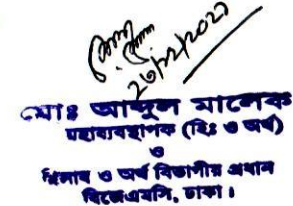 ২৬/১২/২০২১
মোঃ আব্দুল মালেক
মহাব্যবস্থাপক (হিঃ ও অর্থ)
ও
হিসাব ও অর্থ বিভাগীয় প্রধান
বিজেএমসি, ঢাকা।